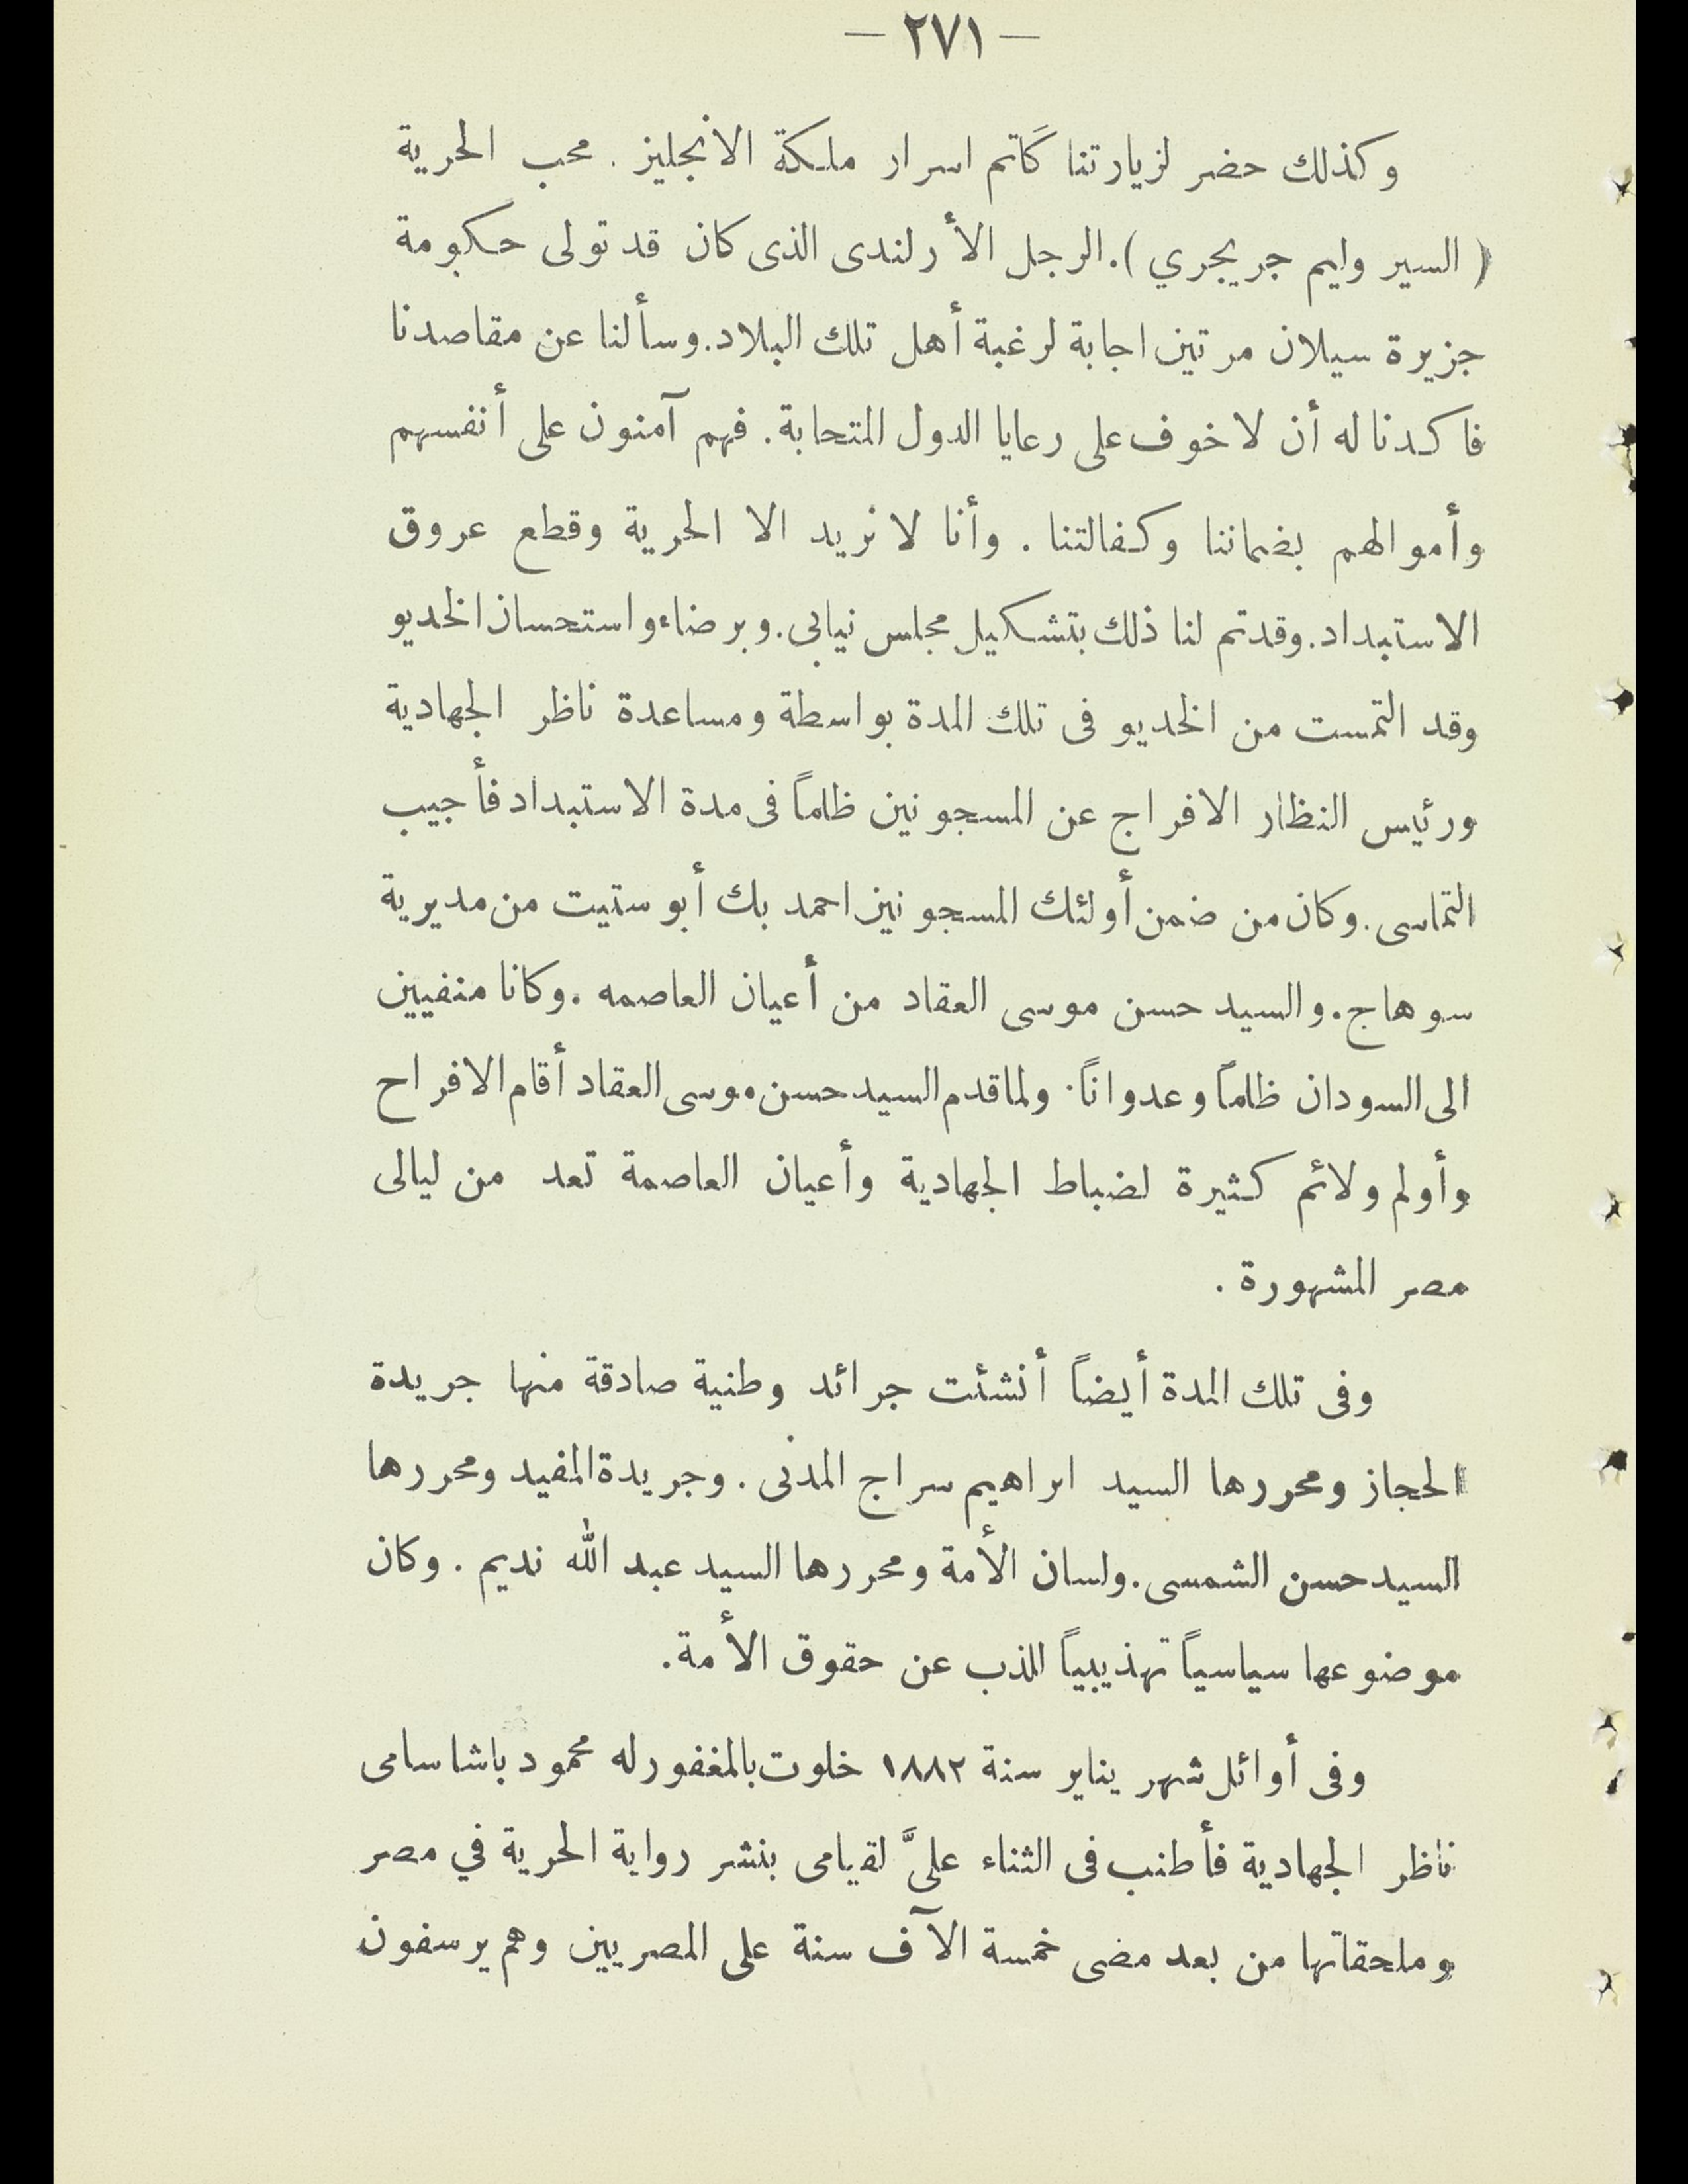 — ٢٧١ —
وكذلك حضر لزيارتنا كاتم اسرار ملكة الانجليز . محب الحرية
( السير وليم جريجري ). الرجل الأرلندى الذى كان قد تولى حكومة
جزيرة سيلان مرتين اجابة لرغبة أهل تلك البلاد. وسألنا عن مقاصدنا
فاكدنا له أن لا خوف على رعايا الدول المتحابة. فهم آمنون على أنفسهم
وأموالهم بضماننا وكفالتنا . وأنا لا نريد الا الحرية وقطع عروق
الاستبداد. وقد تم لنا ذلك بتشكيل مجلس نيابى. وبرضاء واستحسان الخديو
وقد التمست من الخديو فى تلك المدة بواسطة ومساعدة ناظر الجهادية
ورئيس النظار الافراج عن المسجونين ظلماً فى مدة الاستبداد فأجيب
التماسى. وكان من ضمن أولئك المسجونين احمد بك أبو ستيت من مديرية
سوهاج. والسيد حسن موسى العقاد من أعيان العاصمه . وكانا منفيين
الى السودان ظلماً وعدواناً. ولما قدم السيد حسن موسى العقاد أقام الافراح
وأولم ولائم كثيرة لضباط الجهادية وأعيان العاصمة تعد من ليالى
مصر المشهورة .
وفى تلك المدة أيضاً أنشئت جرائد وطنية صادقة منها جريدة
الحجاز ومحررها السيد ابراهيم سراج المدنى . وجريدة المفيد ومحررها
السيد حسن الشمسى. ولسان الأمة ومحررها السيد عبد الله نديم . وكان
موضوعها سياسياً تهذيبياً للذب عن حقوق الأمة.
وفى أوائل شهر يناير سنة ١٨٨٢ خلوت بالمغفور له محمود باشا سامى
ناظر الجهادية فأطنب فى الثناء علىَّ لقيامى بنشر رواية الحرية في مصر
وملحقاتها من بعد مضى خمسة الآف سنة على المصريين وهم يرسفون